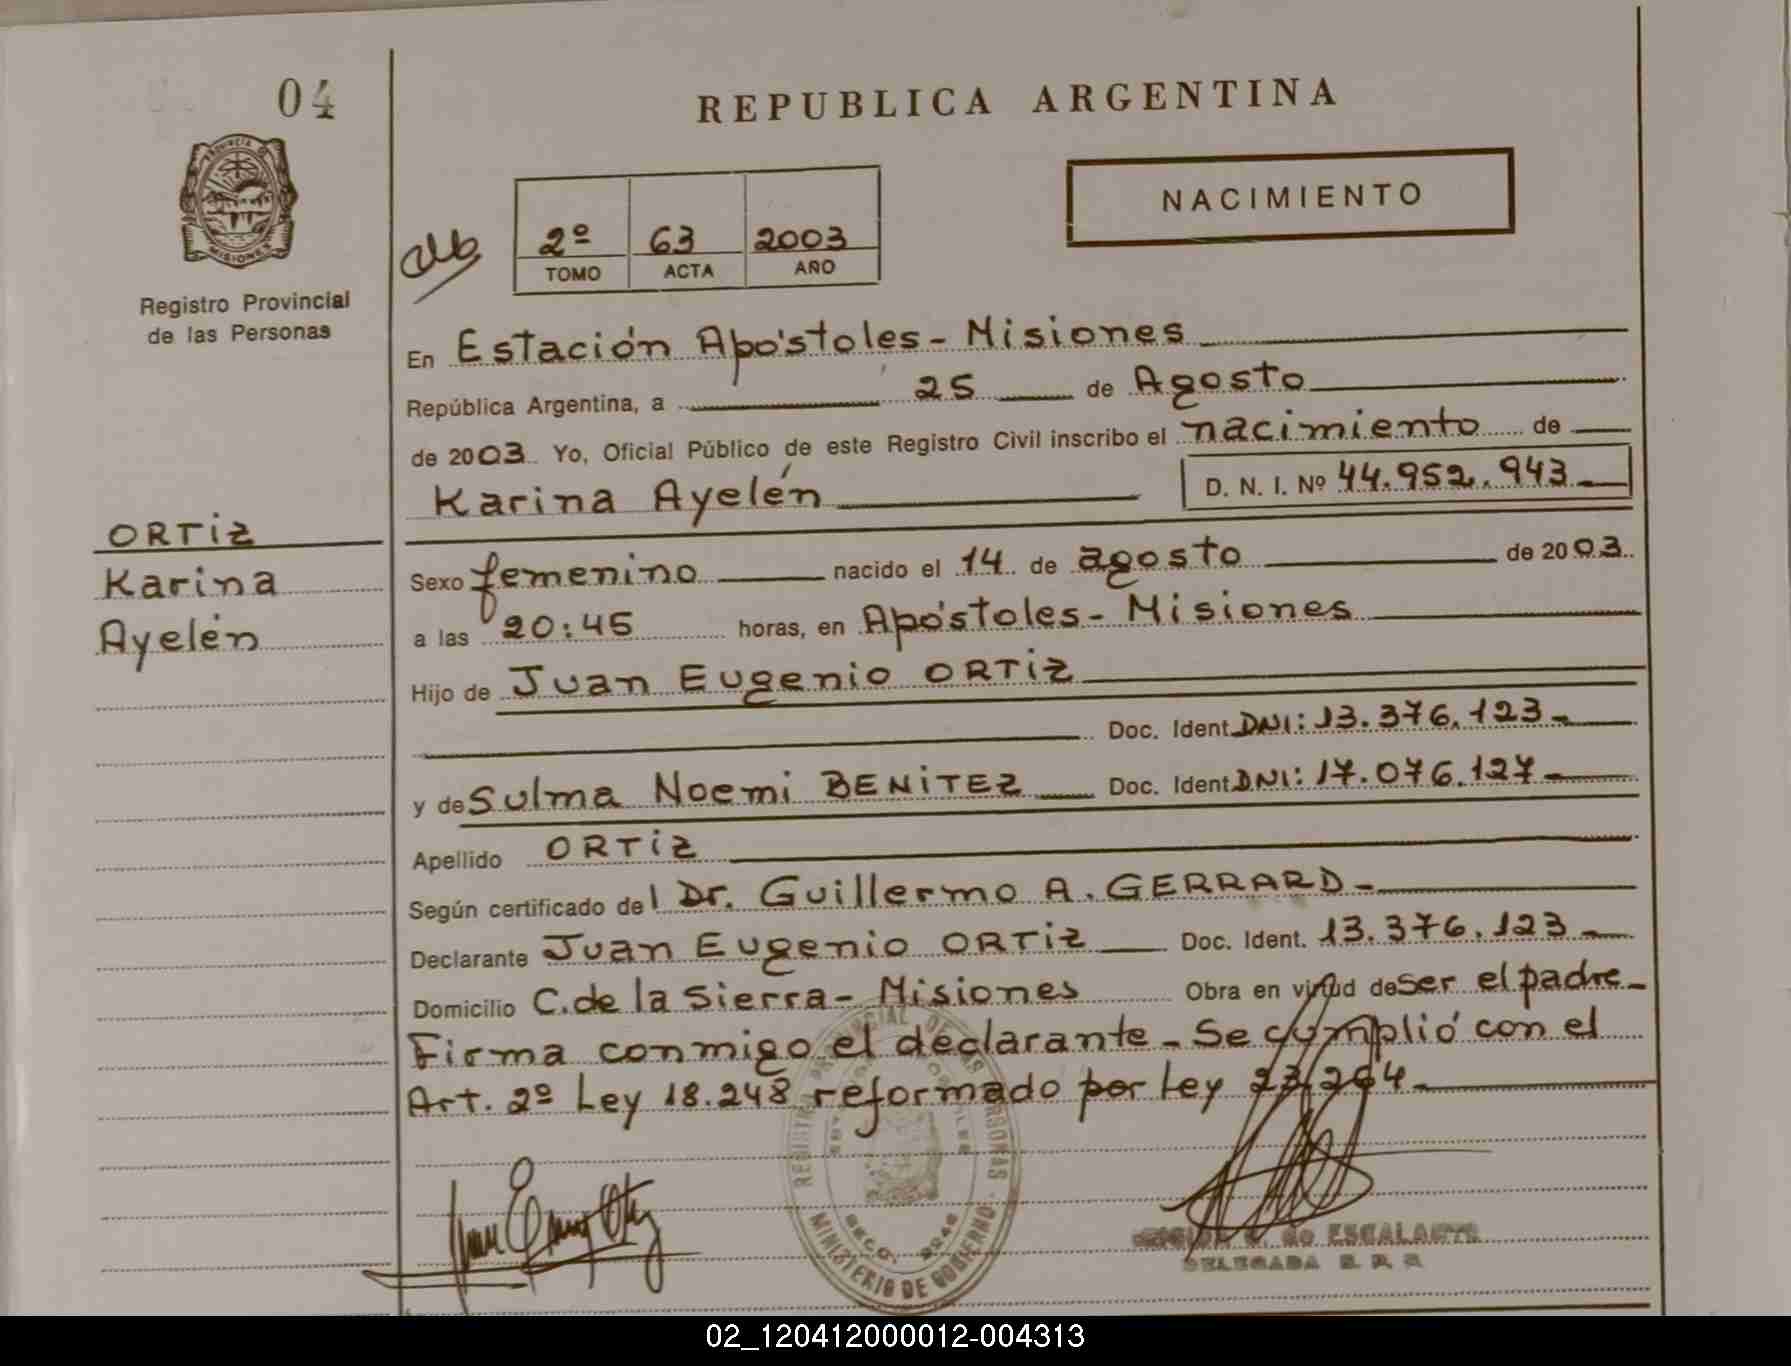 04
REPUBLICA ARGENTINA
NACIMIENTO
PROVINCIA DE
MISIONES
Registro Provincial
de las Personas
2º 63 2003
TOMO ACTA AÑO
En Estación Apóstoles - Misiones
República Argentina, a 25 de Agosto
de 2003 Yo, Oficial Público de este Registro Civil inscribo el nacimiento de
Karina Ayelén D. N. I. Nº 44.952.943
ORTiZ
Karina
Ayelén
Sexo femenino nacido el 14 de agosto de 2003
a las 20:45 horas, en Apóstoles - Misiones
Hijo de Juan Eugenio ORTiZ
Doc. Ident DNI: 13.376.123
y de Sulma Noemi BENiTEZ Doc. Ident DNI: 17.076.127
Apellido ORTiZ
Según certificado del Dr. Guillermo A. GERRARD
Declarante Juan Eugenio ORTiZ Doc. Ident. 13.376.123
Domicilio C. de la Sierra - Misiones Obra en virtud de ser el padre
Firma conmigo el declarante - Se cumplió con el
Art. 2º Ley 18.248 reformado por Ley 23.264
REGISTRO PROVINCIAL DE LAS PERSONAS
MINISTERIO DE GOBIERNO
de ESCALANTE
DELEGADA
02_120412000012-004313